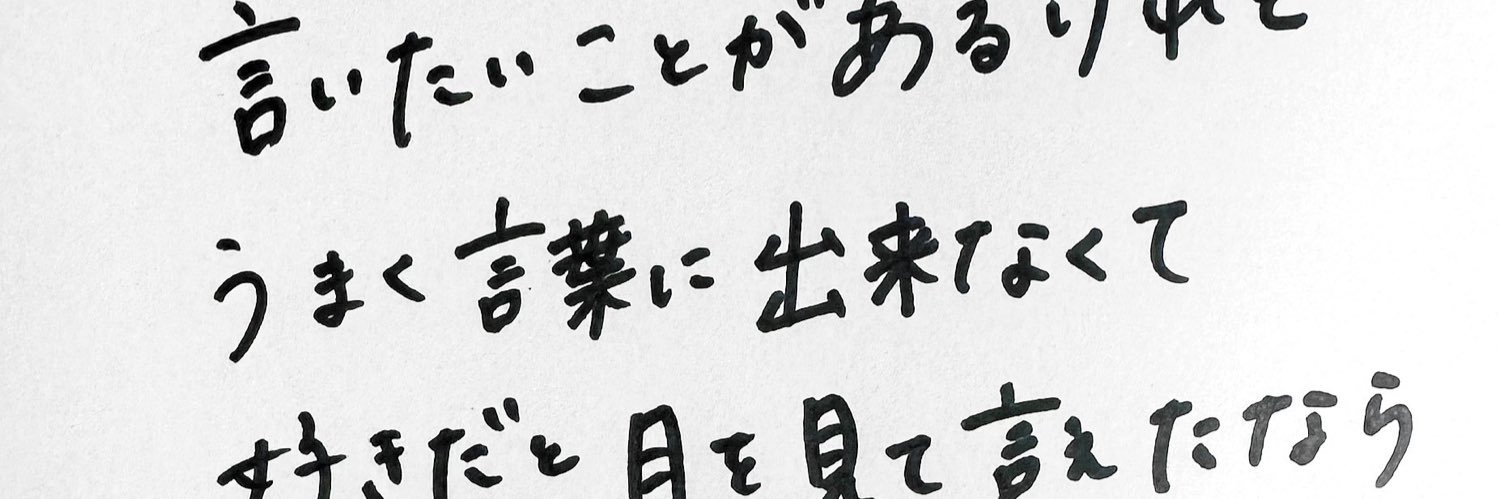 言いたいことがあるけれど
うまく言葉に出来なくて
好きだと目を見て言えたなら